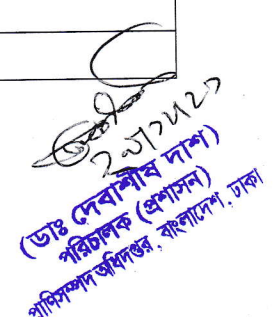 (ডাঃ দেবাশীষ দাশ)
পরিচালক (প্রশাসন)
প্রাণিসম্পদ অধিদপ্তর, বাংলাদেশ, ঢাকা